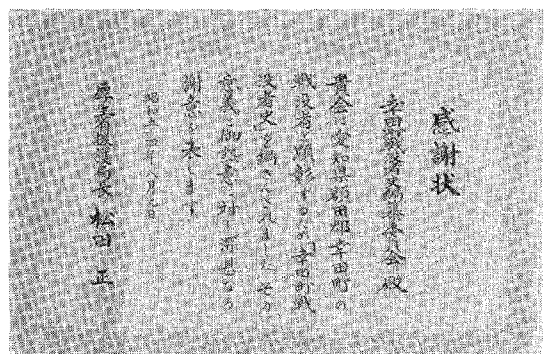 感謝状
幸田戦没者史編集委員会殿
貴会は愛知県額田郡幸田町の
戦没者を顕彰するため幸田町戦
没者史を編さんされましたその
意義と御熱意に対し
謝意を表します
昭和五十四年八月 日
厚生省援護局長 松田 正